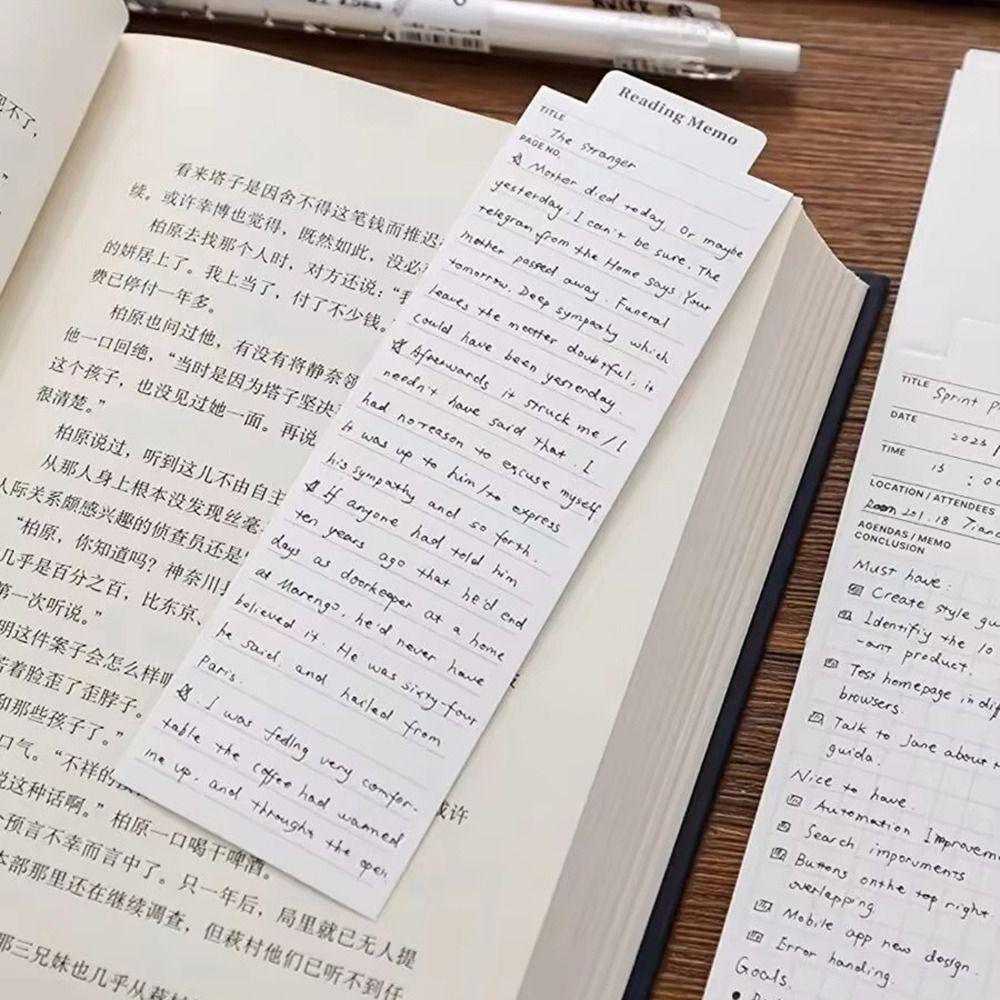 把不了，
”
看来塔子是因舍不得这笔钱而推迟
续。或许幸博也觉得，既然如此，没必
柏原去找那个人时，对方还说：“我
的姘居上了。我上当了，付了不少钱。
费已停付一年多。
柏原也问过他，有没有将静奈领
他一口回绝，“当时是因为塔子坚决
这个孩子，也没见过她一面。再说
很清楚。”
柏原说过，听到这儿不由自主
从那人身上根本没发现丝毫
人际关系颇感兴趣的侦查员还是
“柏原，你知道吗？神奈川
几乎是百分之百，比东京、
第一次听说。”
明这件案子会怎么样
若着脸歪了歪脖子。
和那些孩子了。”
口气。“不样的
说这种话啊。”柏原一口喝干啤酒。
或许
个预言不幸而言中了。只一年后，局里就已无人提
本部那里还在继续调查，但萩村他们已听不到任
那三兄妹也几乎从萩村
Reading Memo
TITLE
The Stranger
PAGE NO.
Mother died today. Or maybe
yesterday; I can't be sure. The
telegram from the Home says: Your
mother passed away. Funeral
tomorrow. Deep sympathy which
leaves the matter doubtful; it
could have been yesterday.
Afterwards it struck me / I
needn't have said that. I
had no reason to excuse myself
it was up to him/to express
his sympathy and so forth.
If anyone had told him
ten years ago that he'd end
days as doorkeeper at a home
at Marengo, he'd never have
believed it. He was sixty-four
he said. and hailed from
Paris.
I was feeling very comfor-
table the coffee had warmed
me up, and throught the open
TITLE
Sprint P
DATE
2023 /
TIME
13 : 00
LOCATION / ATTENDEES
Room 201. 18
AGENDAS / MEMO
CONCLUSION
Must have:
Create style gu
Identifiy the 10
-ant product.
Test homepage in dif
browsers.
Talk to Jane about t
guida.
Nice to have.
Automation Improveme
Search imporuments
Buttons on the top right
overlapping.
Mobile app new design.
Error handing.
Goals.